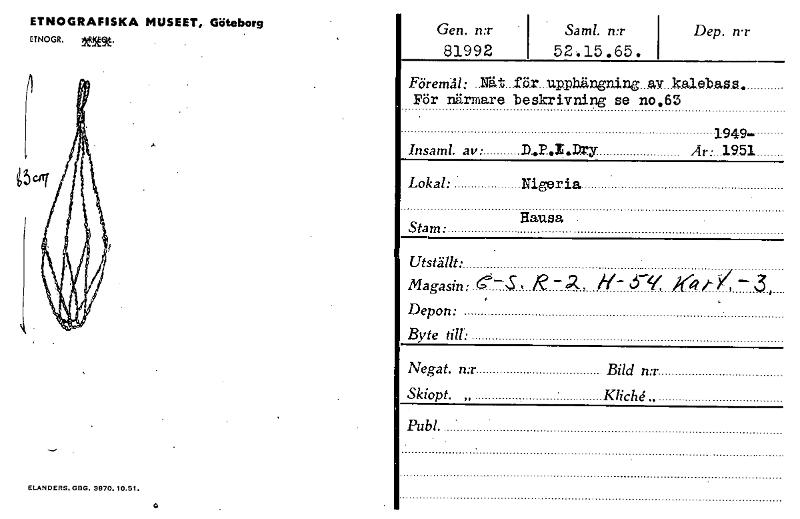 ETNOGRAFISKA MUSEET, Göteborg
ETNOGR. ARKEOL.
83cm
ELANDERS, GBG. 3970. 10.51.
Gen. n:r Saml. n:r Dep. n:r
81992 52.15.65.
Föremål: Nät för upphängning av kalebass.
För närmare beskrivning se no.63
1949-
Insaml. av: D.P.L.Dry År: 1951
Lokal: Nigeria
Hausa
Stam:
Utställt:
Magasin: G-S. R-2. H-54. Kart. - 3.
Depon:
Byte till:
Negat. n:r Bild n:r
Skiopt. „ Kliché „
Publ.